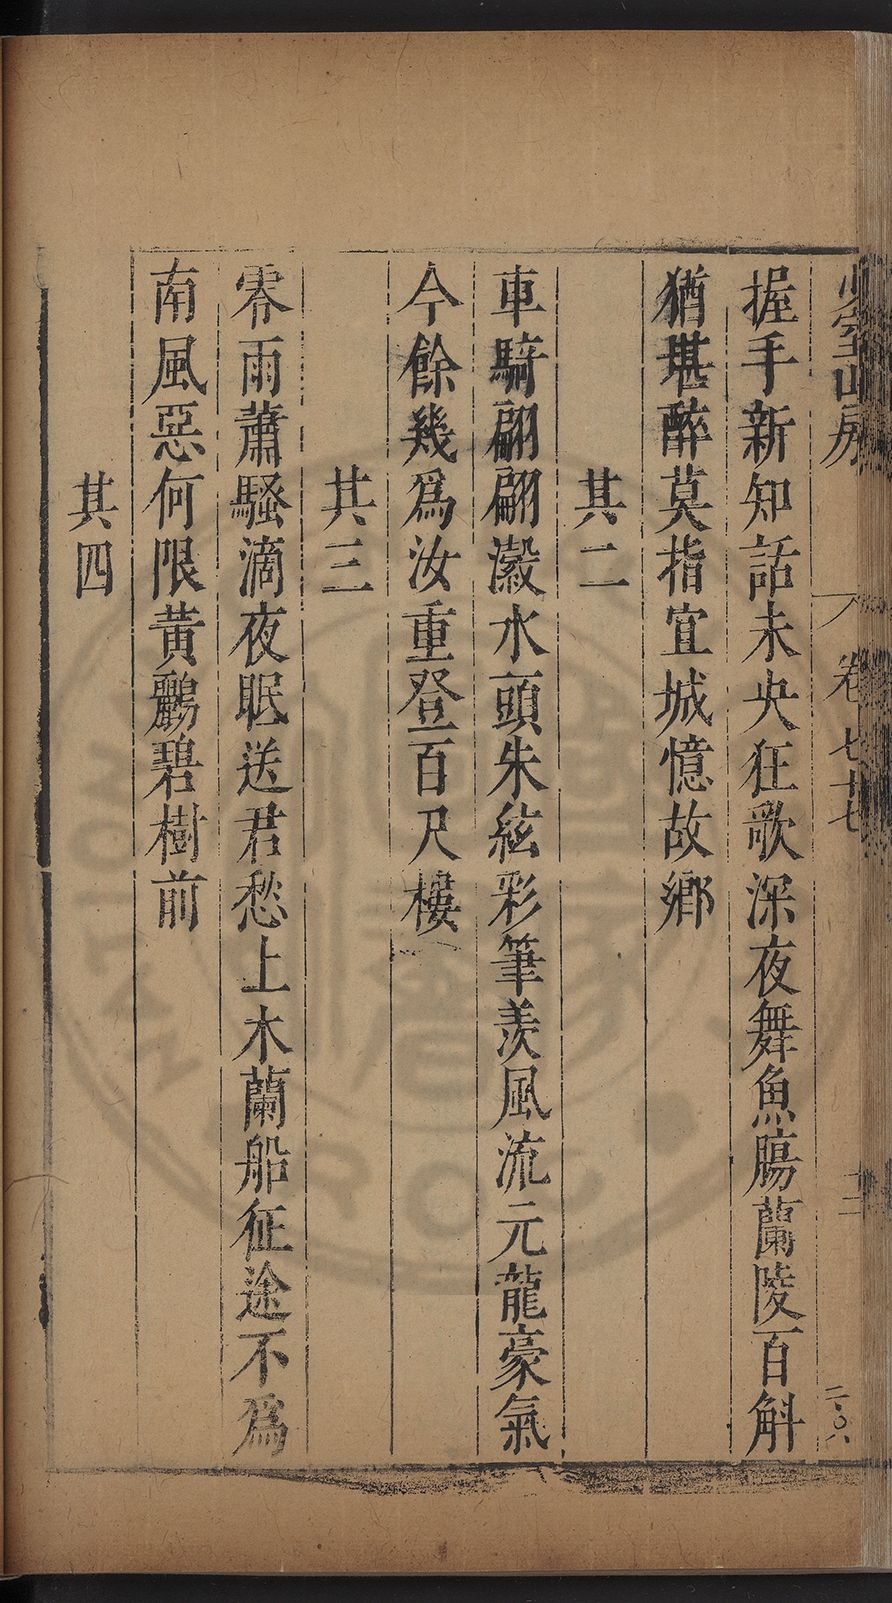 握手新知話未央狂歌深夜舞魚腸蘭陵百斛
猶堪醉莫指宜城憶故鄉
其二
車騎翩翩瀫水頭朱絃彩筆羨風流元龍豪氣
今餘幾爲汝重登百尺樓
其三
零雨蕭騷滴夜眠送君愁上木蘭船征途不爲
南風惡何限黃鸝碧樹前
其四